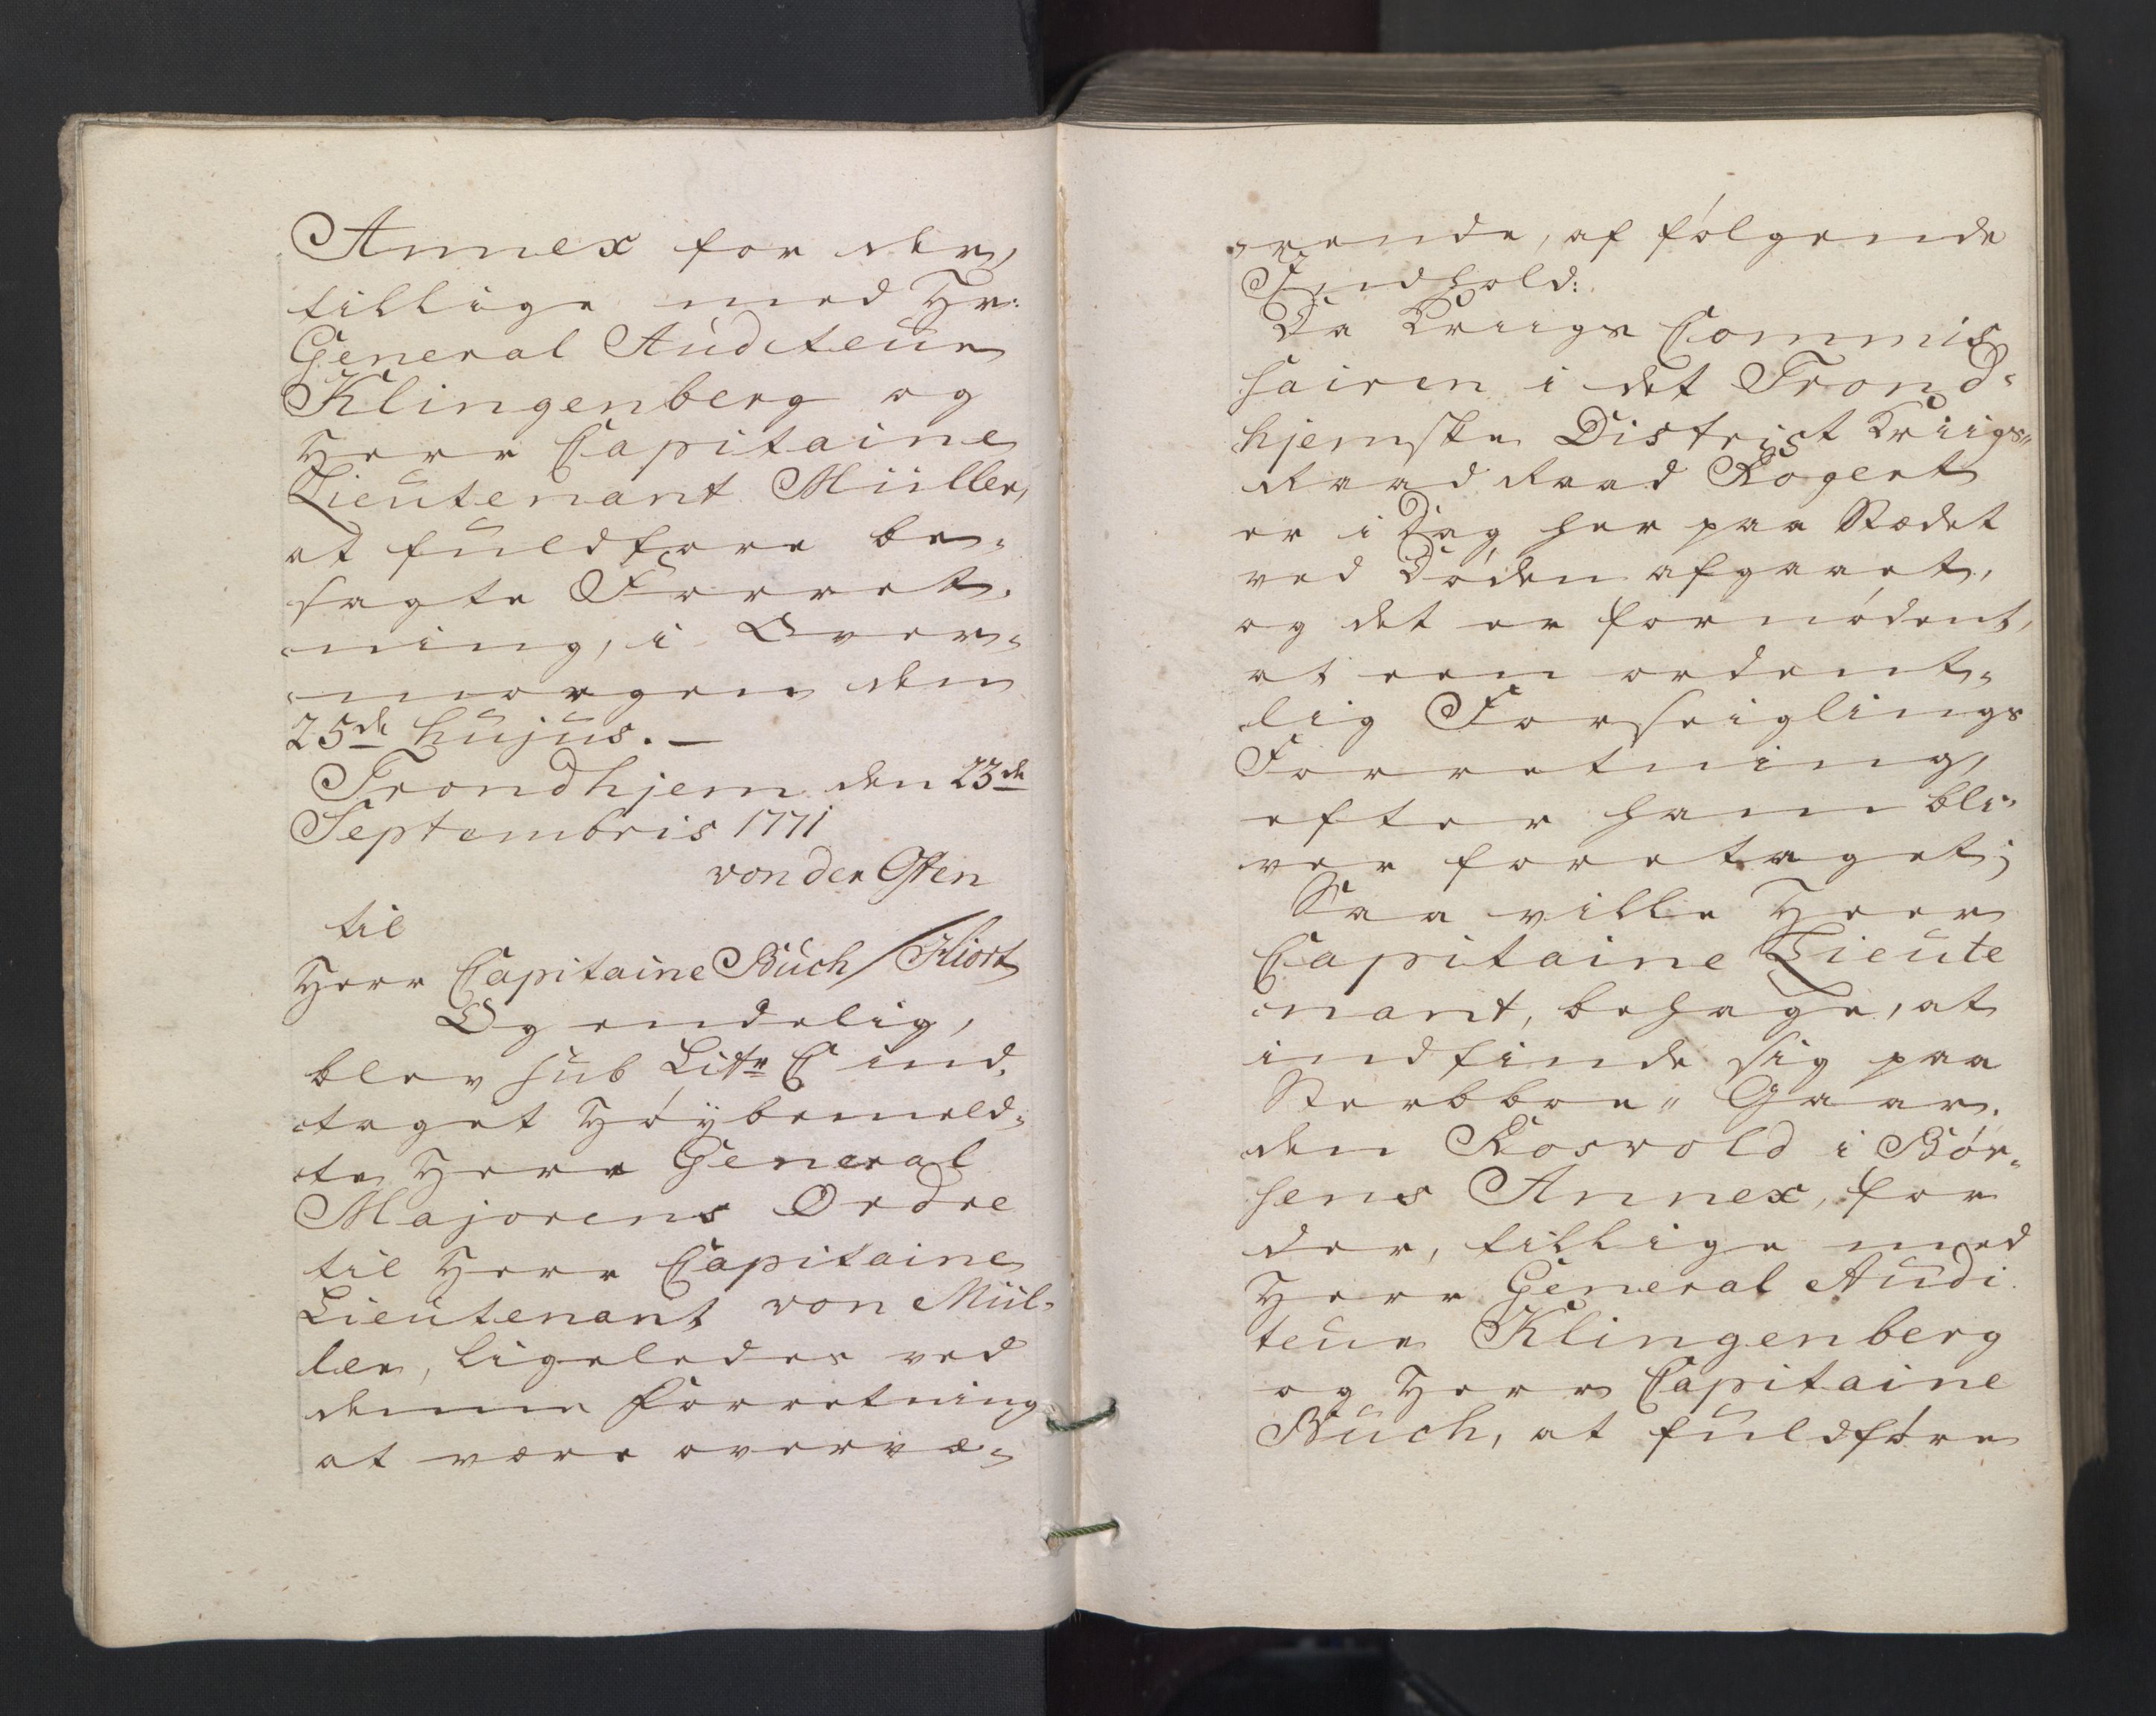 Annex for der,
tillige med Hr:
General Auditeur
Klingenberg og
Herr Capitaine
Lieutenant Müller,
at fuldføre be-
sagte Forret-
ning, i Over-
morgen den
25de hujus. —
Trondhjem den 23de
Septembris 1771
von der Osten
til
Herr Capitaine Buch / Hiort
Og endelig,
blev sub Littr C ind-
taget Høÿbemeld-
te Herr General
Majorens Ordre
til Herr Capitaine
Lieutenant von Mül-
ler, ligeledes ved
denne Forretning
at være overvæ-
rende, af følgende
Indhold:
Da Kriigs Commis
sairen i det Trond-
hjemske District Kriigs-
Raad Raad Rogert
er i Dag her paa Stædet
ved Døden afgaaet,
og det er fornødent,
at een ordent-
lig Forseiglings
Forretning,
efter ham bli-
ver foretaget;
Saa ville Herr
Capitaine Lieute
nant, behage, at
indfinde sig paa
Sterbboe" Gaar-
den Rosvold i Bør-
sens Annex, for
der, tillige med
Herr General Audi
teur Klingenberg
og Herr Capitaine
Buch, at fuldføre